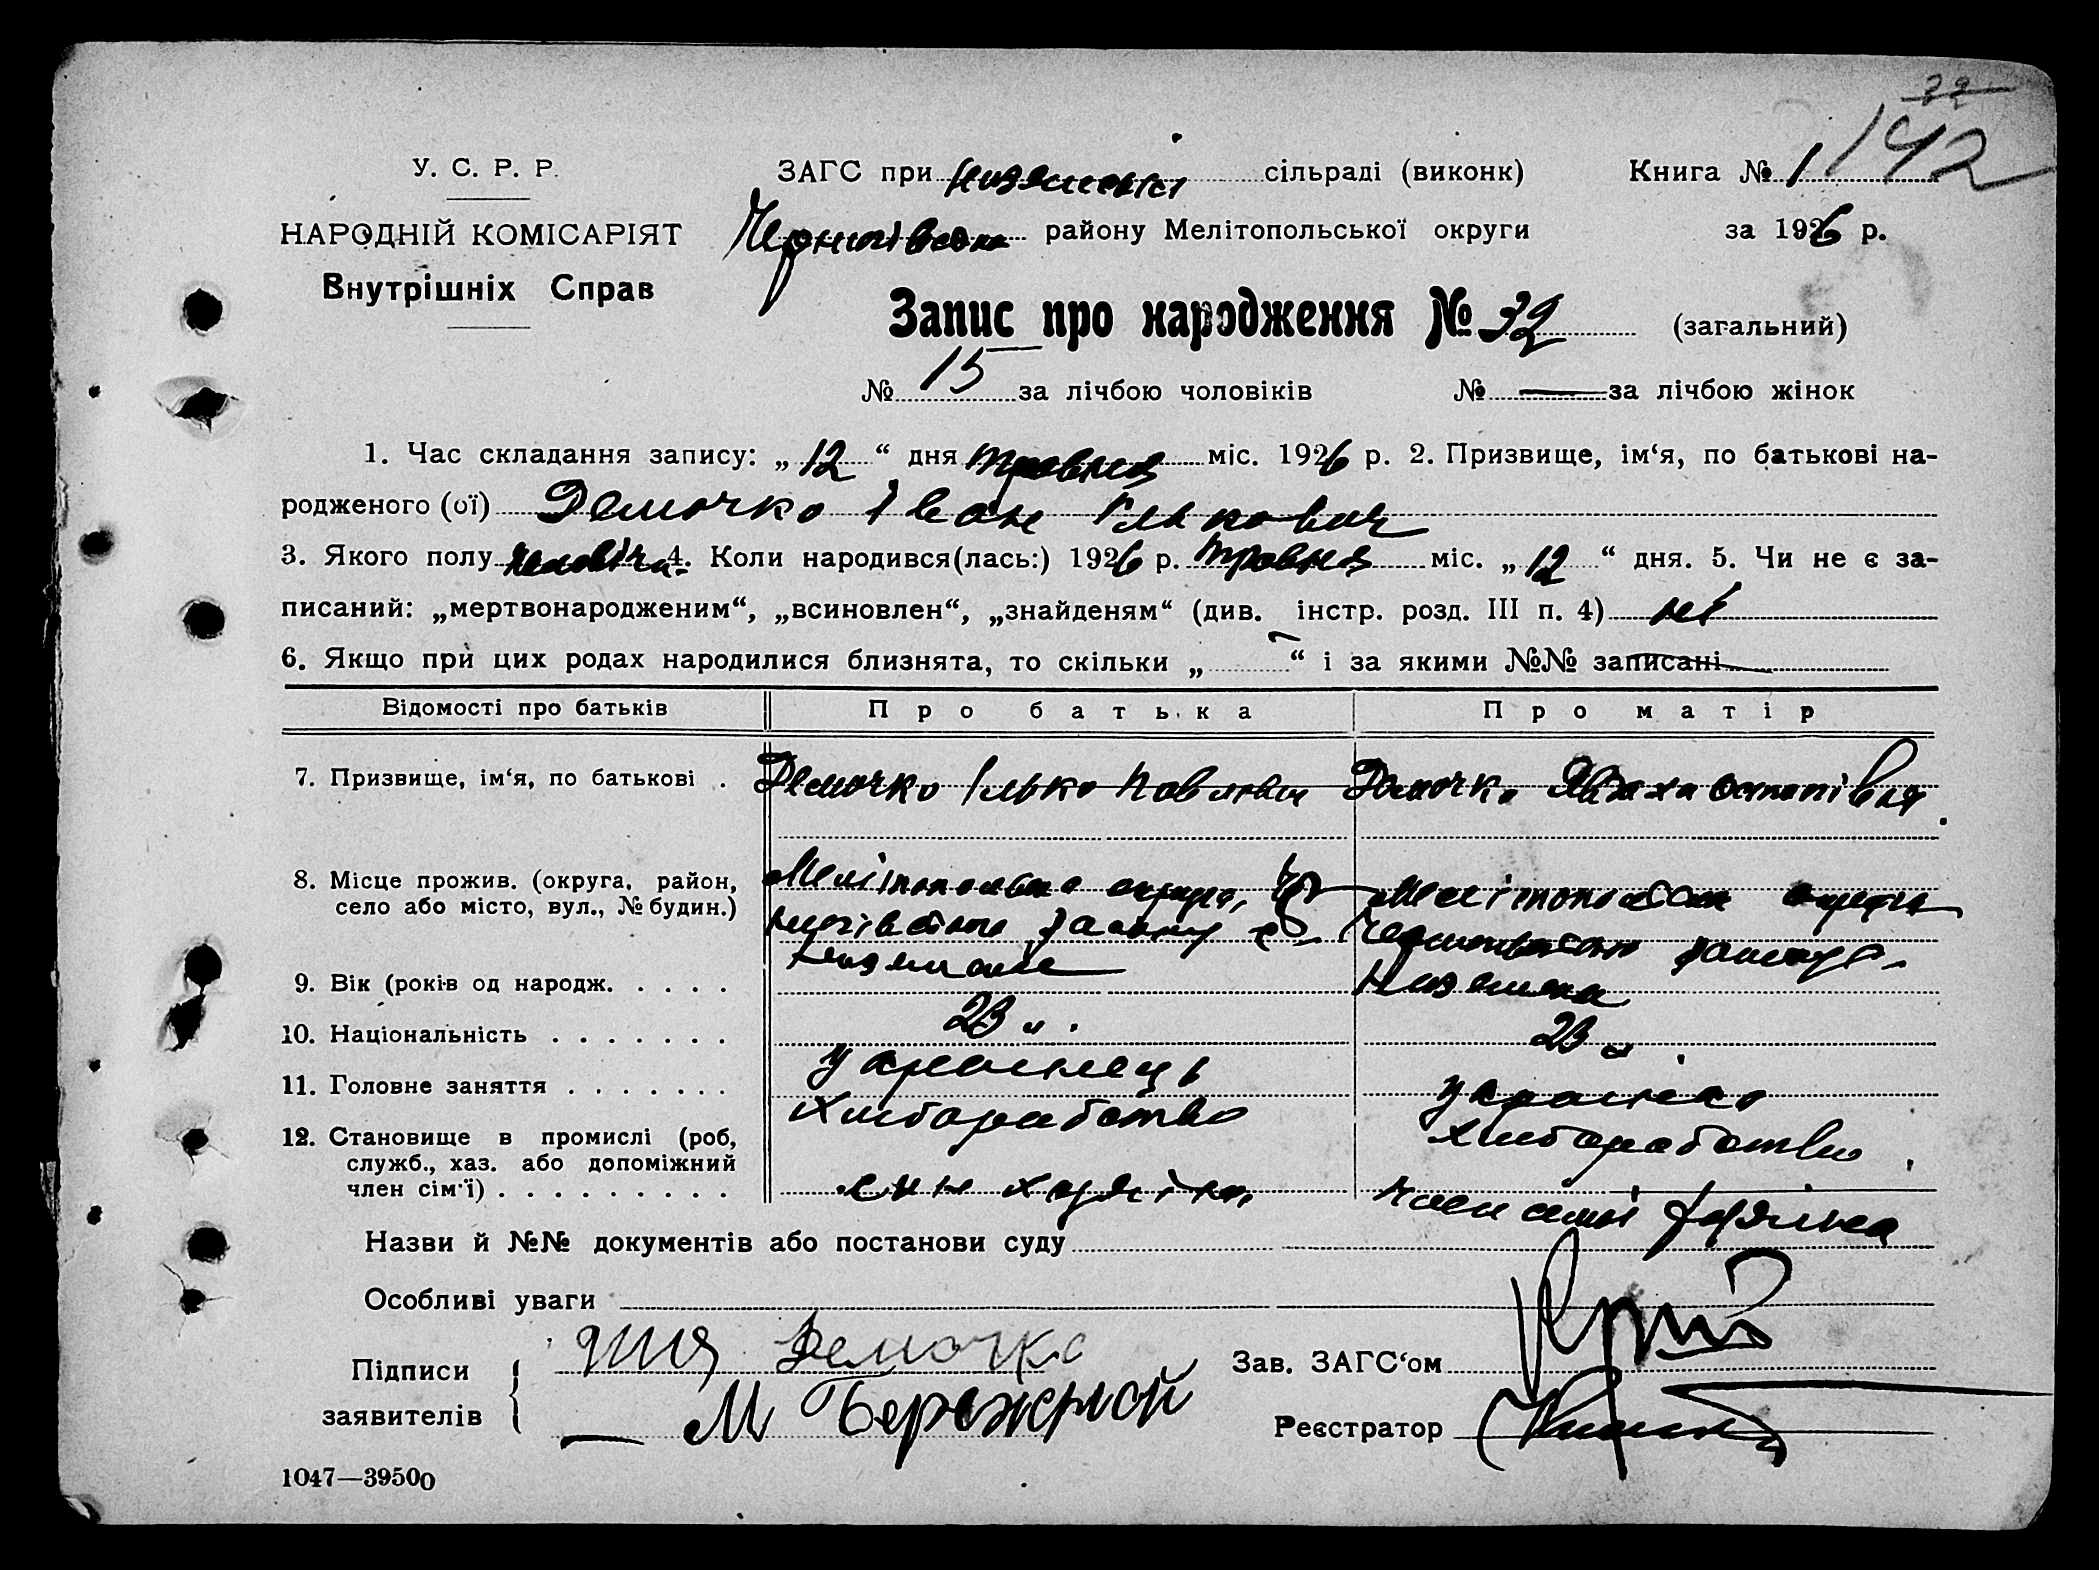 32
142
У. С. Р. Р. ЗАГС при сільраді (виконк) Книга № 1
НАРОДНІЙ КОМІСАРІЯТ Чернигівського району Мелітопольської округи за 1926 р.
Внутрішніх Справ
Запис про народження № 32 (загальний)
№ 15 за лічбою чоловіків № — за лічбою жінок
1. Час складання запису: „ 12 “ дня травня міс. 1926 р. 2. Призвище, ім‘я, по батькові на-
родженого (ої) Демочко Іван Ількович
3. Якого полу 4. Коли народився(лась:) 1926 р. травня міс. „ 12 “ дня. 5. Чи не є за-
писаний: „мертвонародженим“, „всиновлен“, „знайденям“ (див. інстр. розд. III п. 4) ні
6. Якщо при цих родах народилися близнята, то скільки „ — “ і за якими №№ записані —
Відомості про батьків Про батька Про матір
7. Призвище, ім‘я, по батькові . Демочко Ілько Павлович Демочко Остапівна
8. Місце прожив. (округа, район, село або місто, вул., № будин.) Мелітопольска округа, Чер-
нигівського району с. Мелітопольска округа
Низяни району с.
9. Вік (років од народж. . . . . 23 р. 23 р.
10. Національність . . . . . . . українець українка
11. Головне заняття . . . . . . . хліборобство хліборобство
12. Становище в промислі (роб, служб., хаз. або допоміжний член сім‘ї) . . . . . . . . . син хазяїна член семьі хазяїна
Назви й №№ документів або постанови суду
Особливі уваги
Підписи Демочко Зав. ЗАГС‘ом
заявителів М Бережной Реєстратор
1047—39500